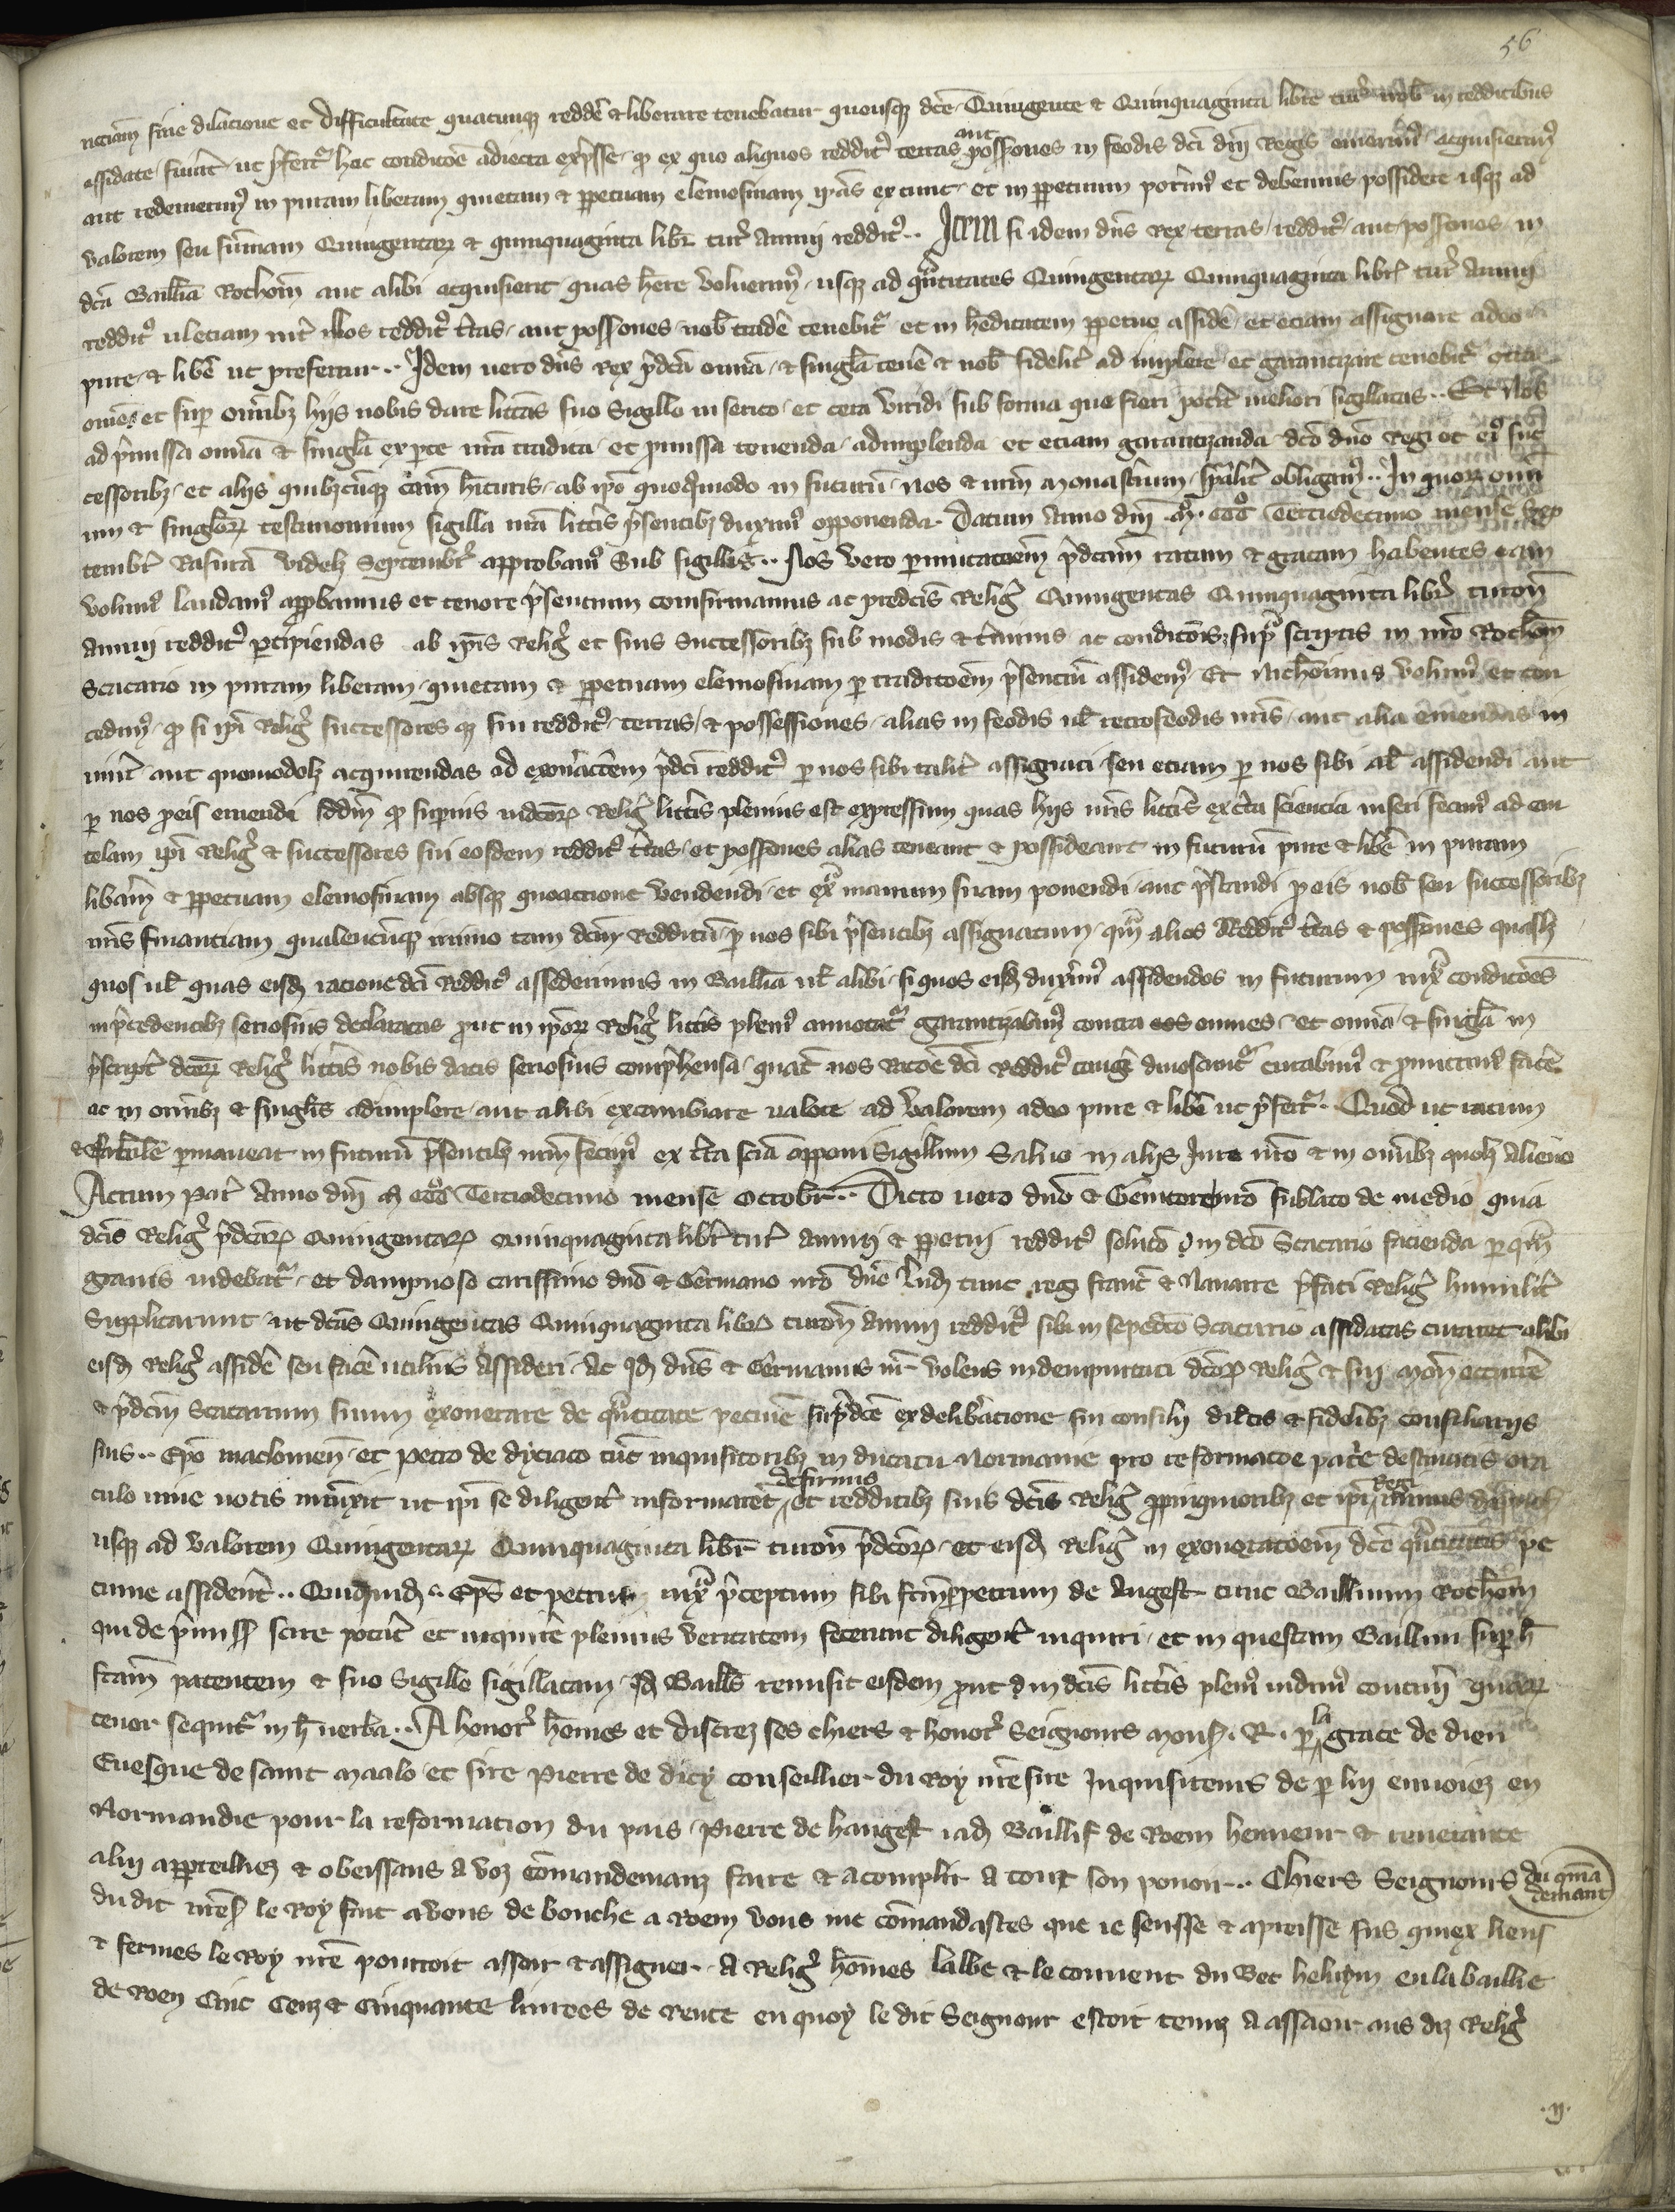 56
neciam sine dilacione et difficultate quacunque redde & liberare tenebatur quousque dce Quingente & Quinquaginta libre tur nob in redditibus
assidate fuint ut pfert hac condicõe adiecta expsse q ex quo aliquos reddit terras aut possones in feodis dci dni Regis emerim acquisierim
aut redemerim in puram liberam quietam & ppetuam elemosinam ipãs ex tunc et in ppetuum poterim et debemus possidere usque ad
valorem seu sũmam Quingentar & quinquaginta libr tur annui reddit .. Item si idem dns Rex terras reddit aut possones in
dca Baillia Rothom aut alibi acquisierit quas here voluerim usque ad qntitates Quingentar Quinquaginta libr tur annui
reddit ul etiam int illos reddit tras aut possones nob trade tenebit et in hereditatem ppetue asside et eciam assignare adeo
pure & libe ut prefertur .. Idem vero dns Rex pdca omia & singla tene & nob fidelit ad implere et garantizare tenebit contra
omes et sup omibz hijs nobis dare lras suo Sigillo in serico et cera viridi sub forma que fieri potit meliori sigillatas .. Et Nos
ad pmissa omia & singla ex pte nra tradita et pmissa tenenda adimplenda et eciam garantizanda dco dno Regi et ei suc
cessoribz et alijs quibzcunque cam hituris ab ipo quoquomodo in futurũ nos & nrm monastium spalit obligam .. In quor om
ium & singlor testimonium sigilla nra littis psentibz duxim apponenda. Datum Anno dni .M. CCC Terciodecimo mense sep
tembr Rasura videlz Septembr approbam Sub sigillis .. Nos vero pmutacoem pdcam ratam & gratam habentes eam
volum laudam appbamus et tenore psentium confirmamus ac predcis Relig Quingentas Quinquaginta libr turon
annui reddit pcipiendas ab ipis Relig et suis Successoribz sub modis & tminis ac condicois sup scriptis in nro Rothom
Scacario in puram liberam quietam & ppetuam elemosinam p tradicoem psentiũ assidem Et nichõminus volum et con
cedim q si ipi Relig successores que sui reddit terras & possessiones alias in feodis ul retrofeodis nris aut alia emendas in
uenit aut quomodolz acquirendas ad exonactem pdci reddit p nos sibi talit assignati seu eciam p nos sibi al assidendi aut
p nos peis emendi scdm q supius in dcor Relig littis plenius est expressum quas hijs nris littis ex cta sciencia inseri fecim ad cau
telam ipi Relig & successores sui eosdem reddit tras et possones alias teneant & possideant in futurũ pure & libe in puram
libam & ppetuam elemosinam absque quoactione vendendi et ex manum suam ponendi aut pstandi p eis nob seu successoribz
nris finantiam qualemcũque immo tam dcm Redditũ p nos sibi psentibz assignatum qm alios Reddit tras & possones quaslz
quos ul quas eisd racione dci Reddit assederimus in Baillia ul alibi si quos eisd duxim assidendos in futurum iux condicoes
in pcedentibz seriosius declaratas put in ipor Relig littis pleni annotat garantizabim contra eos omnes et omia & singla in
pscript dcor Relig littis nobis datis seriosius comphensa quat nos Racoe dci Reddit tange dinoscunt curabim & pmittim face
ac in omibz & singlis adimplere aut alibi excambiare valore ad valorem adeo pure & libe ut pfert .. Quod ut ratum
& stabile pmaneat in futurũ psentibz nrm fecim ex cta scia apponi Sigillum Salvo in alijs Jure nro & in omibz quolz alieno
Actum Par Anno dni M CCC Terciodecimo mense Octobr .. Dicto vero dno & Genitore nro sublato de medio quia
dcis Relig pdcar Quingentar Quinquaginta libr tur annui & ppetui reddit soluco in dco Scacario facienda p qm
gravis videbat et dampnosa carissimo dno & Germano nro dne Lud tunc regi Franc & Navarre pfati Relig humilit
Supplicarunt ut dcas Quingentas Quinquaginta libr turon annui reddit sibi in sepedco Scacario assidatas curaret alibi
eisd Relig asside seu face utilius assideri Ac id dns & Germanus nr volens indempnitati dcor Relig & sui mon occurre
& pdcm Scacarium suum exonerare de qntitate pecuie supdce ex delibacione sui consilij dilcis & fidelibz consiliarijs
suis .. Epo maclonien et petro de dyciaco tuc inquisitoribz in ducatu Normanie pro reformacoe patie destinatis ora
culo vive vocis iniunxit ut ipi se diligent informaret de firmis et redditibz suis dcis Relig ppinquioribz et ipi Regi minus
usque ad valorem Quingentar Quinquaginta libr turon pdcor et eisd Relig in exoneracoem dce qntitatis pe
cunie assident .. Quiquid .. Eps et petrus iux pceptum sibi fcm p petrum de Angest tunc Baillivum Rothom
qui de pmiss scire potit et inquire plenius veritatem fecerunt diligent inquiri et in questam Baillivi sup h
fcam patentem & suo Sigillo sigillatam Id Baills remisit eisdem put in dcis littis pleni vidim contin quar
tenor sequit in h verba .. A honor homes et discrez ses chiers & honor Seignours Mons. R. p la grace de dieu
Evesque de saint Maalo et sire Pierre de dicy conseillier du Roy nre sire Inquisiteurs de p lui envoiez en
Normandie pour la reformacion du pais Pierre de hangest iad Baillif de Roem henneur & reverance
a lui appreilliez & obeissans a voz comandemanz faire & acomplir a tout son pouoir .. Chiers Seignours du qma
demant
du dit nres le Roy fait a vous de bouche a Roem vous me comandastes que ie seusse & apreisse sus quiex liens
& fermes le Roy nre pourroit asseoir & assigner A Relig homes labbe & le couvent du Bec helluyn en la baillie
de Roen Cinc Cenz & Cinquante livrees de rente en quoy le dit Seignour estoit tenuz a asseoir aus diz Relig
.ij.